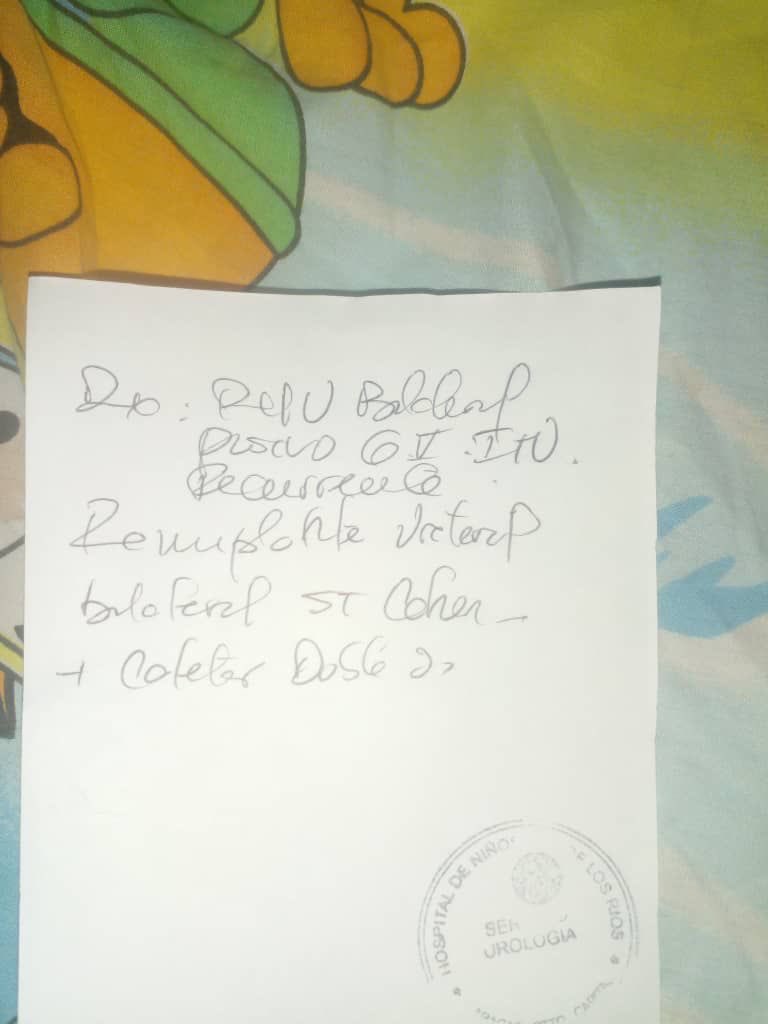 Dx: Refu Bilateral
primario G V. ITU.
Recurrente
Reimplante Ureteral
bilateral ST Cohen -
+ Cateter Doble J
HOSPITAL DE NIÑOS DE LOS RIOS
SER
UROLOGIA